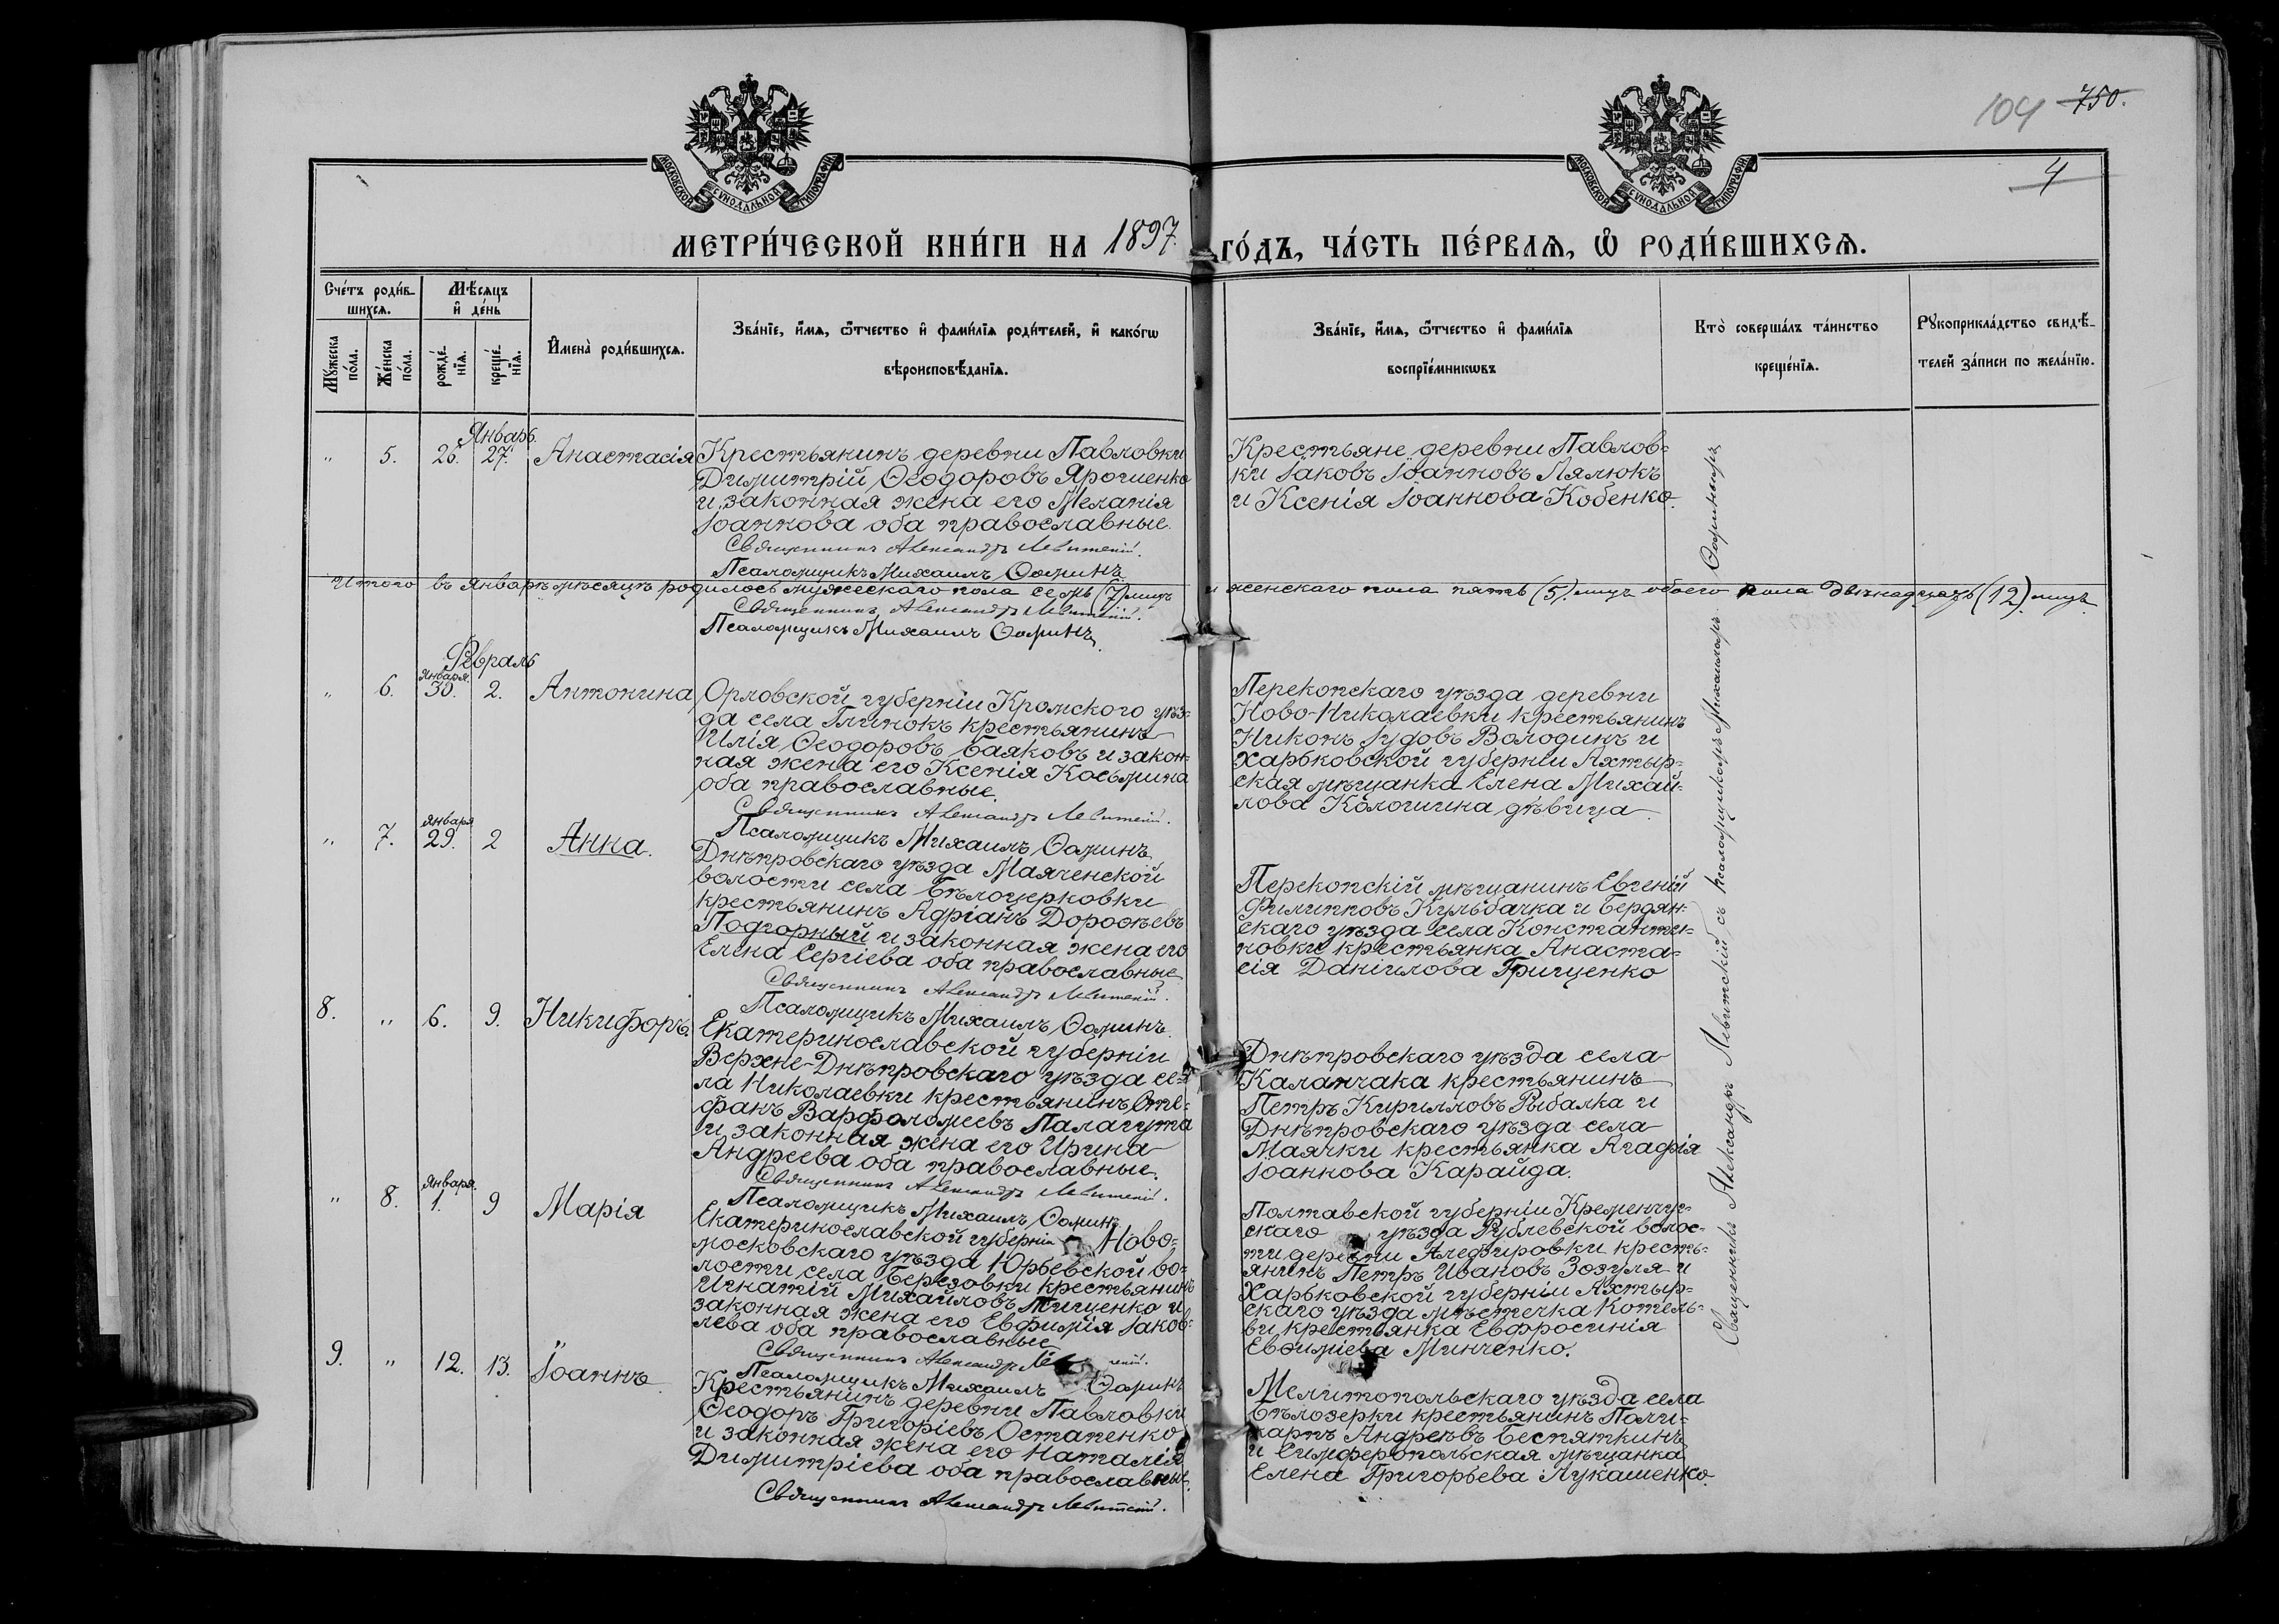 104 750.
4
МОСКОВСКОЙ СѴНОДАЛЬНОЙ ТИПОГРАФІИ
МОСКОВСКОЙ СѴНОДАЛЬНОЙ ТИПОГРАФІИ
МЕТРИ́ЧЕСКОЙ КНИ́ГИ НА 1897 ГО́ДЪ, ЧА́СТЬ ПЕ́РВАѦ, Ѽ РОДИ́ВШИХСѦ.
Сче́тъ роди́в-
шихсѧ.
Мꙋ́жеска
по́ла.
Же́нска
по́ла.
Мѣ́сяцъ
и҆ де́нь
рожде́-
нїѧ.
креще́-
нїѧ.
И҆мена̀ роди́вшихсѧ.
Зва́нїе, и҆́мѧ, ѻ҆́тчество и҆ фами́лїѧ роди́телей, и҆ како́гѡ
вѣроисповѣ́данїѧ.
Зва́нїе, и҆́мѧ, ѻ҆́тчество и҆ фами́лїѧ
воспрїе́мникѡвъ
Кто̀ соверша́лъ та́инство
креще́нїѧ.
Рꙋкоприкла́дство свидѣ́-
телей за́писи по жела́нїю.
Январь.
" 5. 26. 27. Анастасія
Крестьянинъ деревни Павловки
Димитрій Ѳеодоровъ Ярошенко
и законная жена его Меланія
Іоаннова оба православные.
Священникъ Александръ Левитскій.
Псаломщикъ Михаилъ Ѳоминъ.
Крестьяне деревни Павлов-
ки Іаковъ Іоанновъ Лялюкъ
и Ксенія Іоаннова Кобенко.
Итого въ январѣ мѣсяцѣ родилось мужескаго пола семь (7) лицъ и женскаго пола пять (5) лицъ обоего пола двѣнадцать (12) лицъ
Священникъ Александръ Левитскій.
Псаломщикъ Михаилъ Ѳоминъ.
Февраль
января
" 6. 30. 2. Антонина
Орловской губерніи Кромского уѣз-
да села Глинокъ крестьянинъ
Илія Ѳеодоровъ Баяковъ и закон-
ная жена его Ксенія Косьмина
оба православные.
Священникъ Александръ Левитскій.
Псаломщикъ Михаилъ Ѳоминъ
Перекопскаго уѣзда деревни
Ново-Николаевки крестьянинъ
Никонъ Іудовъ Володинъ и
Харьковской губерніи Ахтыр-
ская мѣщанка Елена Михай-
лова Кологиина дѣвица.
января
" 7. 29. 2 Анна.
Днѣпровскаго уѣзда Маяченской
волости села Бѣлоцерковки
крестьянинъ Адріанъ Дороѳѣевъ
Подгорный и законная жена его
Елена Сергіева оба православные
Священникъ Александръ Левитскій.
Псаломщикъ Михаилъ Ѳоминъ.
Перекопскій мѣщанинъ Евгеній
Филипповъ Кульбачка и Бердян-
скаго уѣзда села Константи-
новки крестьянка Анаста-
сія Даніилова Грищенко
8. " 6. 9. Никифоръ.
Екатеринославской губерніи
Верхне-Днѣпровскаго уѣзда се-
ла Николаевки крестьянинъ Сте-
фанъ Варфоломеевъ Палагута
и законная жена его Ирина
Андреева оба православные.
Священникъ Александръ Левитскій.
Псаломщикъ Михаилъ Ѳоминъ
Днѣпровскаго уѣзда села
Каланчака крестьянинъ
Петръ Кирилловъ Рыбалка и
Днѣпровскаго уѣзда села
Маячки крестьянка Агафія
Іоаннова Карайда.
января.
" 8. 1. 9 Марія
Екатеринославской губерніи Ново-
московскаго уѣзда Юрьевской во-
лости села Березовки крестьянинъ
Игнатій Михайловъ Тищенко и
законная жена его Евфимія Іаков-
лева оба православные
Священникъ Александръ
Псаломщикъ Михаилъ Ѳоминъ
Полтавской губерніи Кременчуг-
скаго уѣзда Рублевской волос-
ти деревни Алефировки кресть-
янинъ Петръ Ивановъ Зозуля и
Харьковской губерніи Ахтыр-
скаго уѣзда мѣстечка Котель-
ви крестьянка Евфросинія
Евѳиміева Минченко.
9. " 12. 13. Іоаннъ
Крестьянинъ деревни Павловки
Ѳеодоръ Григоріевъ Остапенко
и законная жена его Наталія
Димитріева оба православные.
Священникъ Александръ Левитскій.
Мелитопольскаго уѣзда села
Бѣлозерки крестьянинъ Поли-
карпъ Андреевъ Беспяткинъ
и Симферопольская мѣщанка
Елена Григорьева Лукашенко.
Священникъ Александръ Левитскій съ псаломщикомъ Михаиломъ Ѳоминымъ